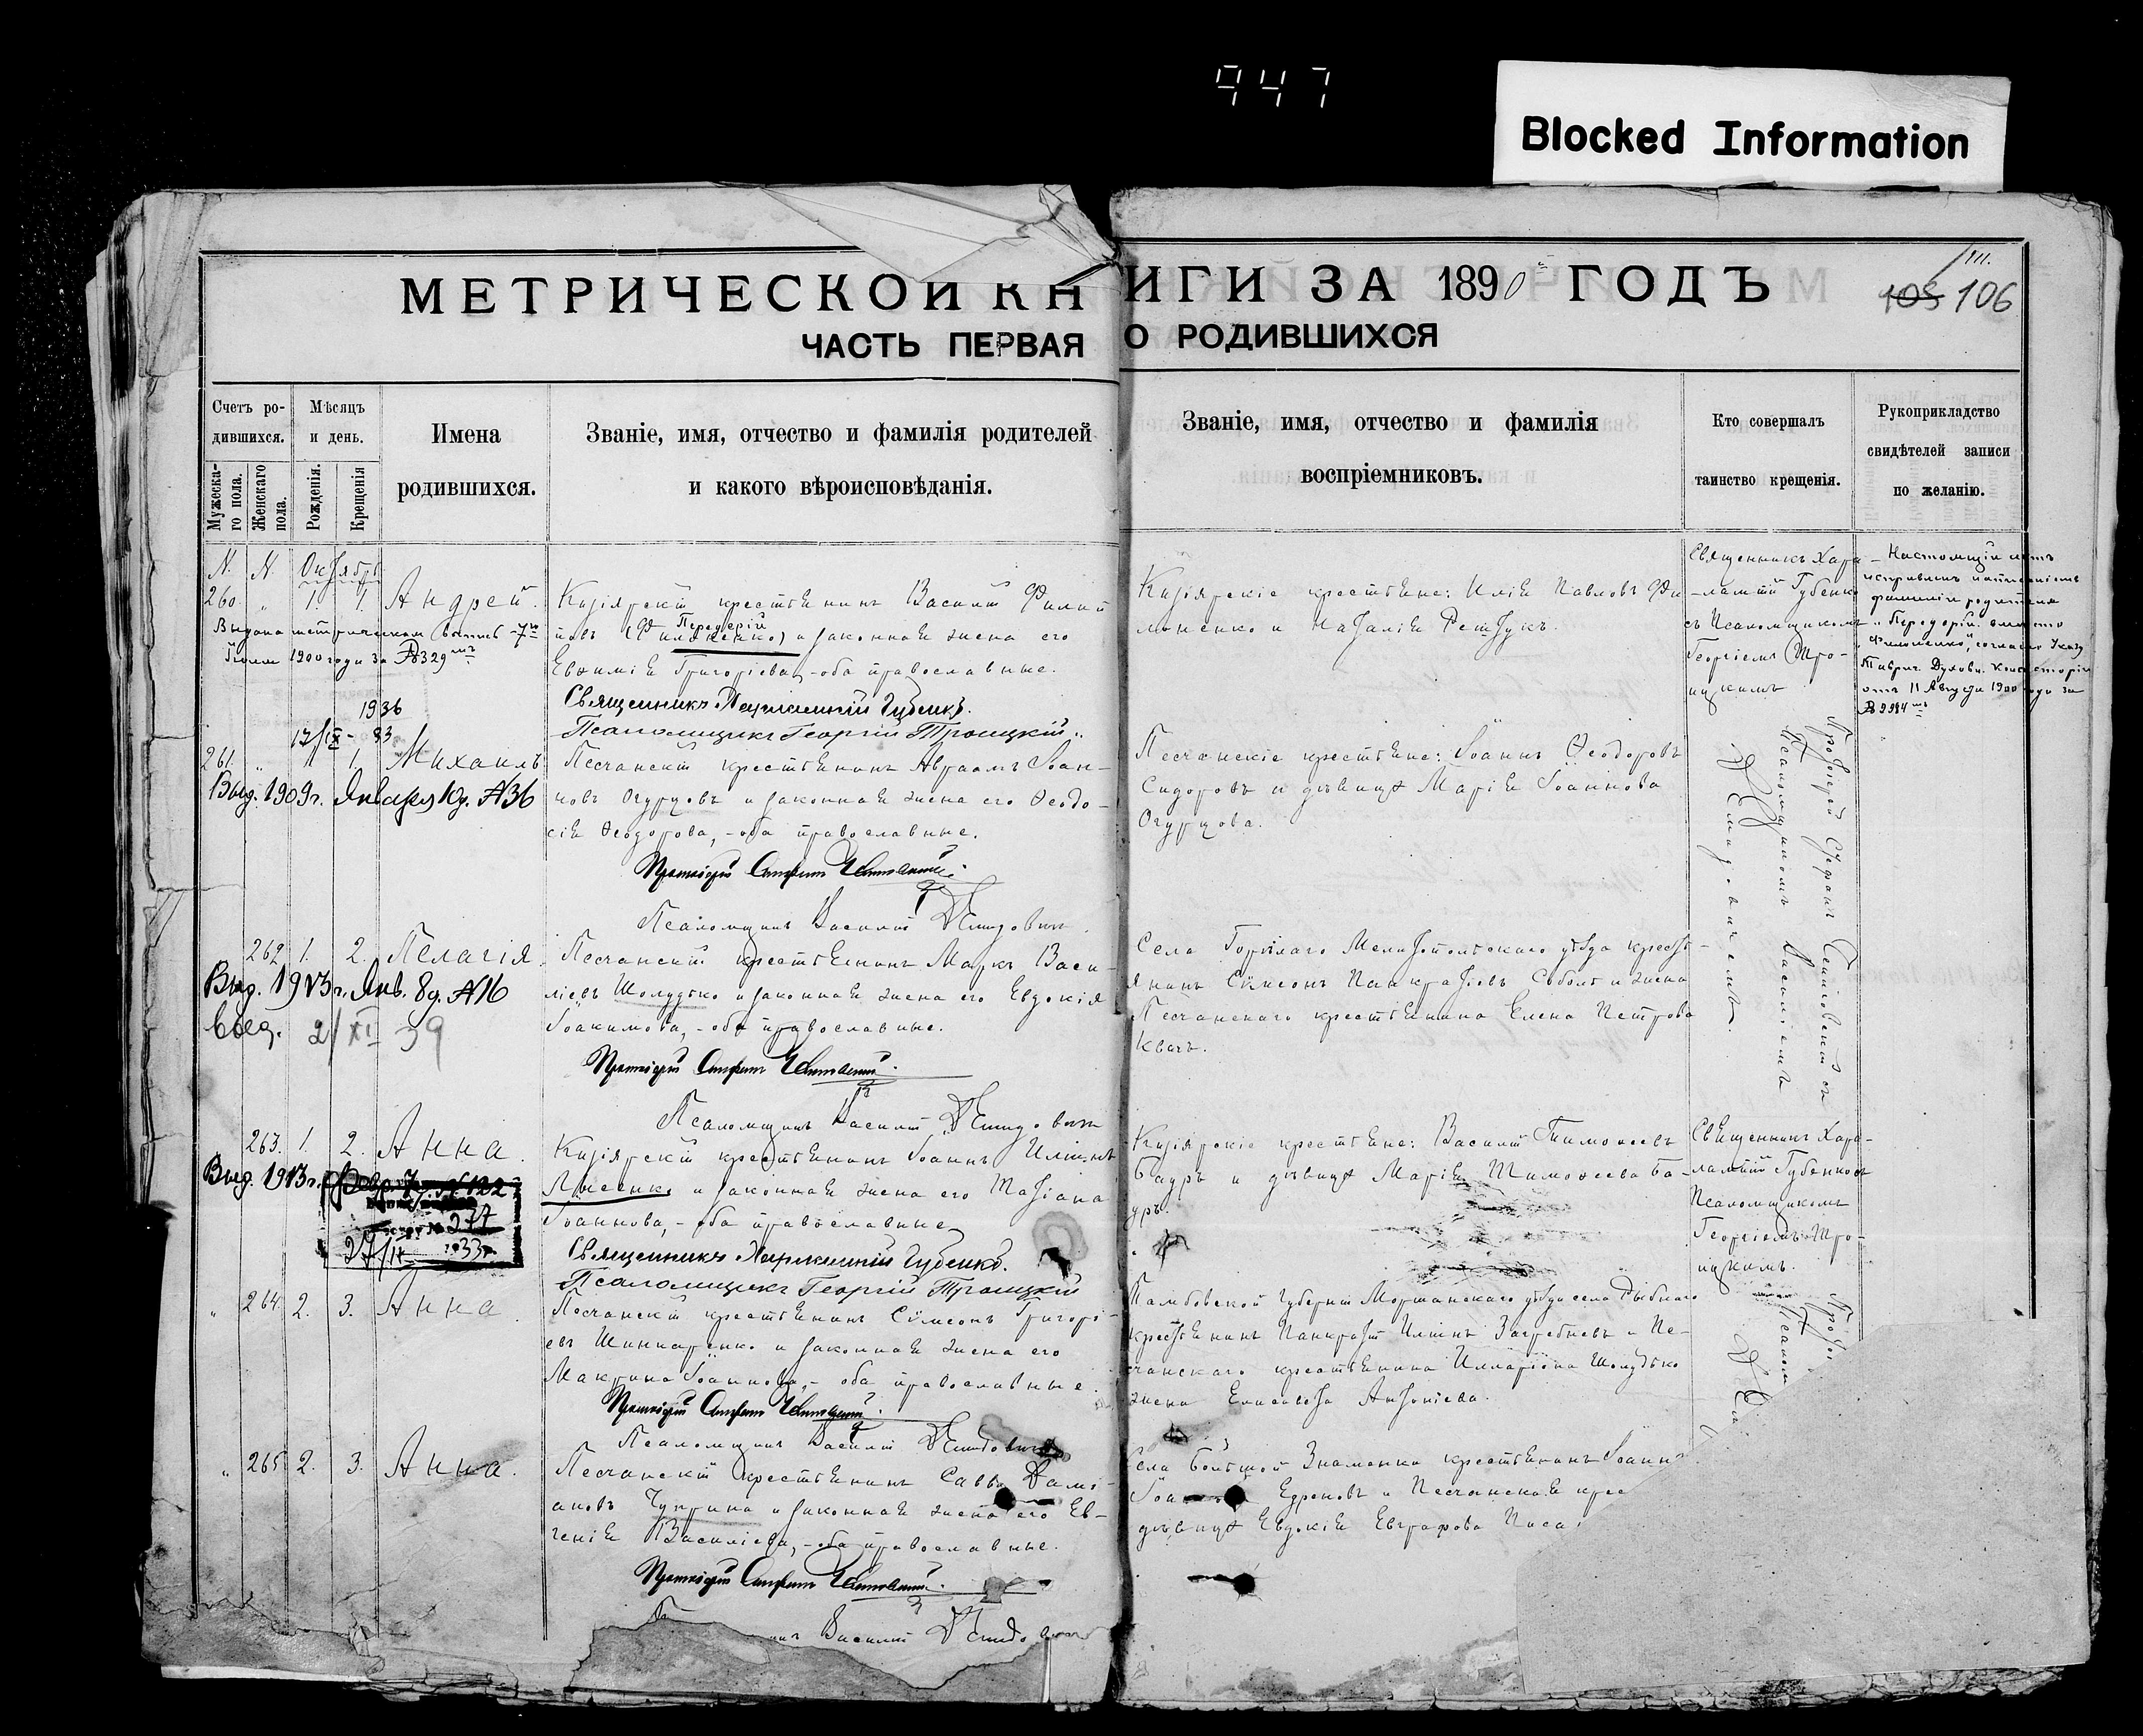 947
Blocked Information
МЕТРИЧЕСКОЙ КНИГИ ЗА 1890й ГОДЪ
111.
105 106
ЧАСТЬ ПЕРВАЯ О РОДИВШИХСЯ
Счетъ ро-
дившихся.
Мужеска-
го пола.
Женскаго
пола.
Мѣсяцъ
и день.
Рожденія.
Крещенія
Имена
родившихся.
Званіе, имя, отчество и фамилія родителей
и какого вѣроисповѣданія.
Званіе, имя, отчество и фамилія
воспріемниковъ.
Кто совершалъ
таинство крещенія.
Рукоприкладство
свидѣтелей записи
по желанію.
N. N. Октябрь
260. " 1. 1. Андрей.
1900 года за №329
крестьянинъ Василій Филип
повъ (Филоненко) и законная жена его
Передерій
Евѳимія Григорієва, - оба православные.
Священникъ Харлампій Губенко.
Псаломщикъ Георгій Троицкій.
крестьяне: Илія Павловъ Фи
лоненко и Наталія
Священникъ Хара
-лампій Губенко
съ Псаломщикомъ
Георгіемъ Тро-
ицкимъ
- Настоящій актъ
исправленъ написаніемъ
фамиліи родителя
"Передерій" вмѣсто
"Филоненко", согласно Указу
Таврич. Духовн. Консисторіи
отъ 11 Августа 1900 года за
1936
261. " 1. 1. Михаилъ
Выд. 1909г. Января 10д. №36
Песчанскій крестьянинъ Авраамъ Іоан-
новъ Огурцовъ и законная жена его Ѳеодо-
сія Ѳеодорова, - оба православные.
Протоіерей Стефанъ
Псаломщикъ Василій Демидовичъ.
Песчанскіе крестьяне: Іоаннъ Ѳеодоровъ
Сидоровъ и дѣвица Марія Іоаннова
Огурцова.
Протоіерей Стефанъ съ
Псаломщикомъ Василіемъ
Демидовичемъ.
262 1. 2. Пелагія.
Выд. 1913г. Янв. 8д. №16
Выд. 2/XI 39
Песчанскій крестьянинъ Маркъ Васи-
ліевъ Шолудько и законная жена его Евдокія
Іоакимова, - оба православные.
Протоіерей Стефанъ
Псаломщикъ Василій Демидовичъ
Села Мелитопольскаго уѣзда кресть-
янинъ Сѵмеонъ Панкратіевъ Соболь и жена
Песчанскаго крестьянина Елена Петрова
Квачъ.
263. 1. 2. Анна.
Выд. 1913г. Февр. 7д. №122
277
27/ 1933г.
крестьянинъ Іоаннъ Иліинъ
Лысенко и законная жена его Татіана
Іоаннова, - оба православные
Священникъ Харлампій Губенко.
Псаломщикъ Георгій Троицкій
крестьяне: Василій Тимоѳеевъ
Бауръ и дѣвица Марія Тимоѳеева Ба-
уръ.
Священникъ Хара-
лампій Губенко съ
Псаломщикомъ
Георгіемъ Тро-
ицкимъ.
" 264. 2. 3. Анна.
Песчанскій крестьянинъ Сѵмеонъ Григорі-
евъ Шинкаренко и законная жена его
Макрина Іоаннова, - оба православные.
Протоіерей Стефанъ
Псаломщикъ Василій Демидовичъ
Тамбовской Губерніи Моршанскаго уѣзда села Рыбнаго
крестьянинъ Панкратій Иліинъ и Пе-
счанскаго крестьянина Илларіона Шолудько
жена Елисавета Антоніева.
" 265 2. 3. Анна.
Песчанскій крестьянинъ Савва Дамі-
ановъ Чуприна и законная жена его Ев-
генія Василіева, - оба православные.
Протоіерей Стефанъ
Василій
Села Большой Знаменки крестьянинъ Іоаннъ
и Песчанская крес
дѣвица Евдокія Евграфова